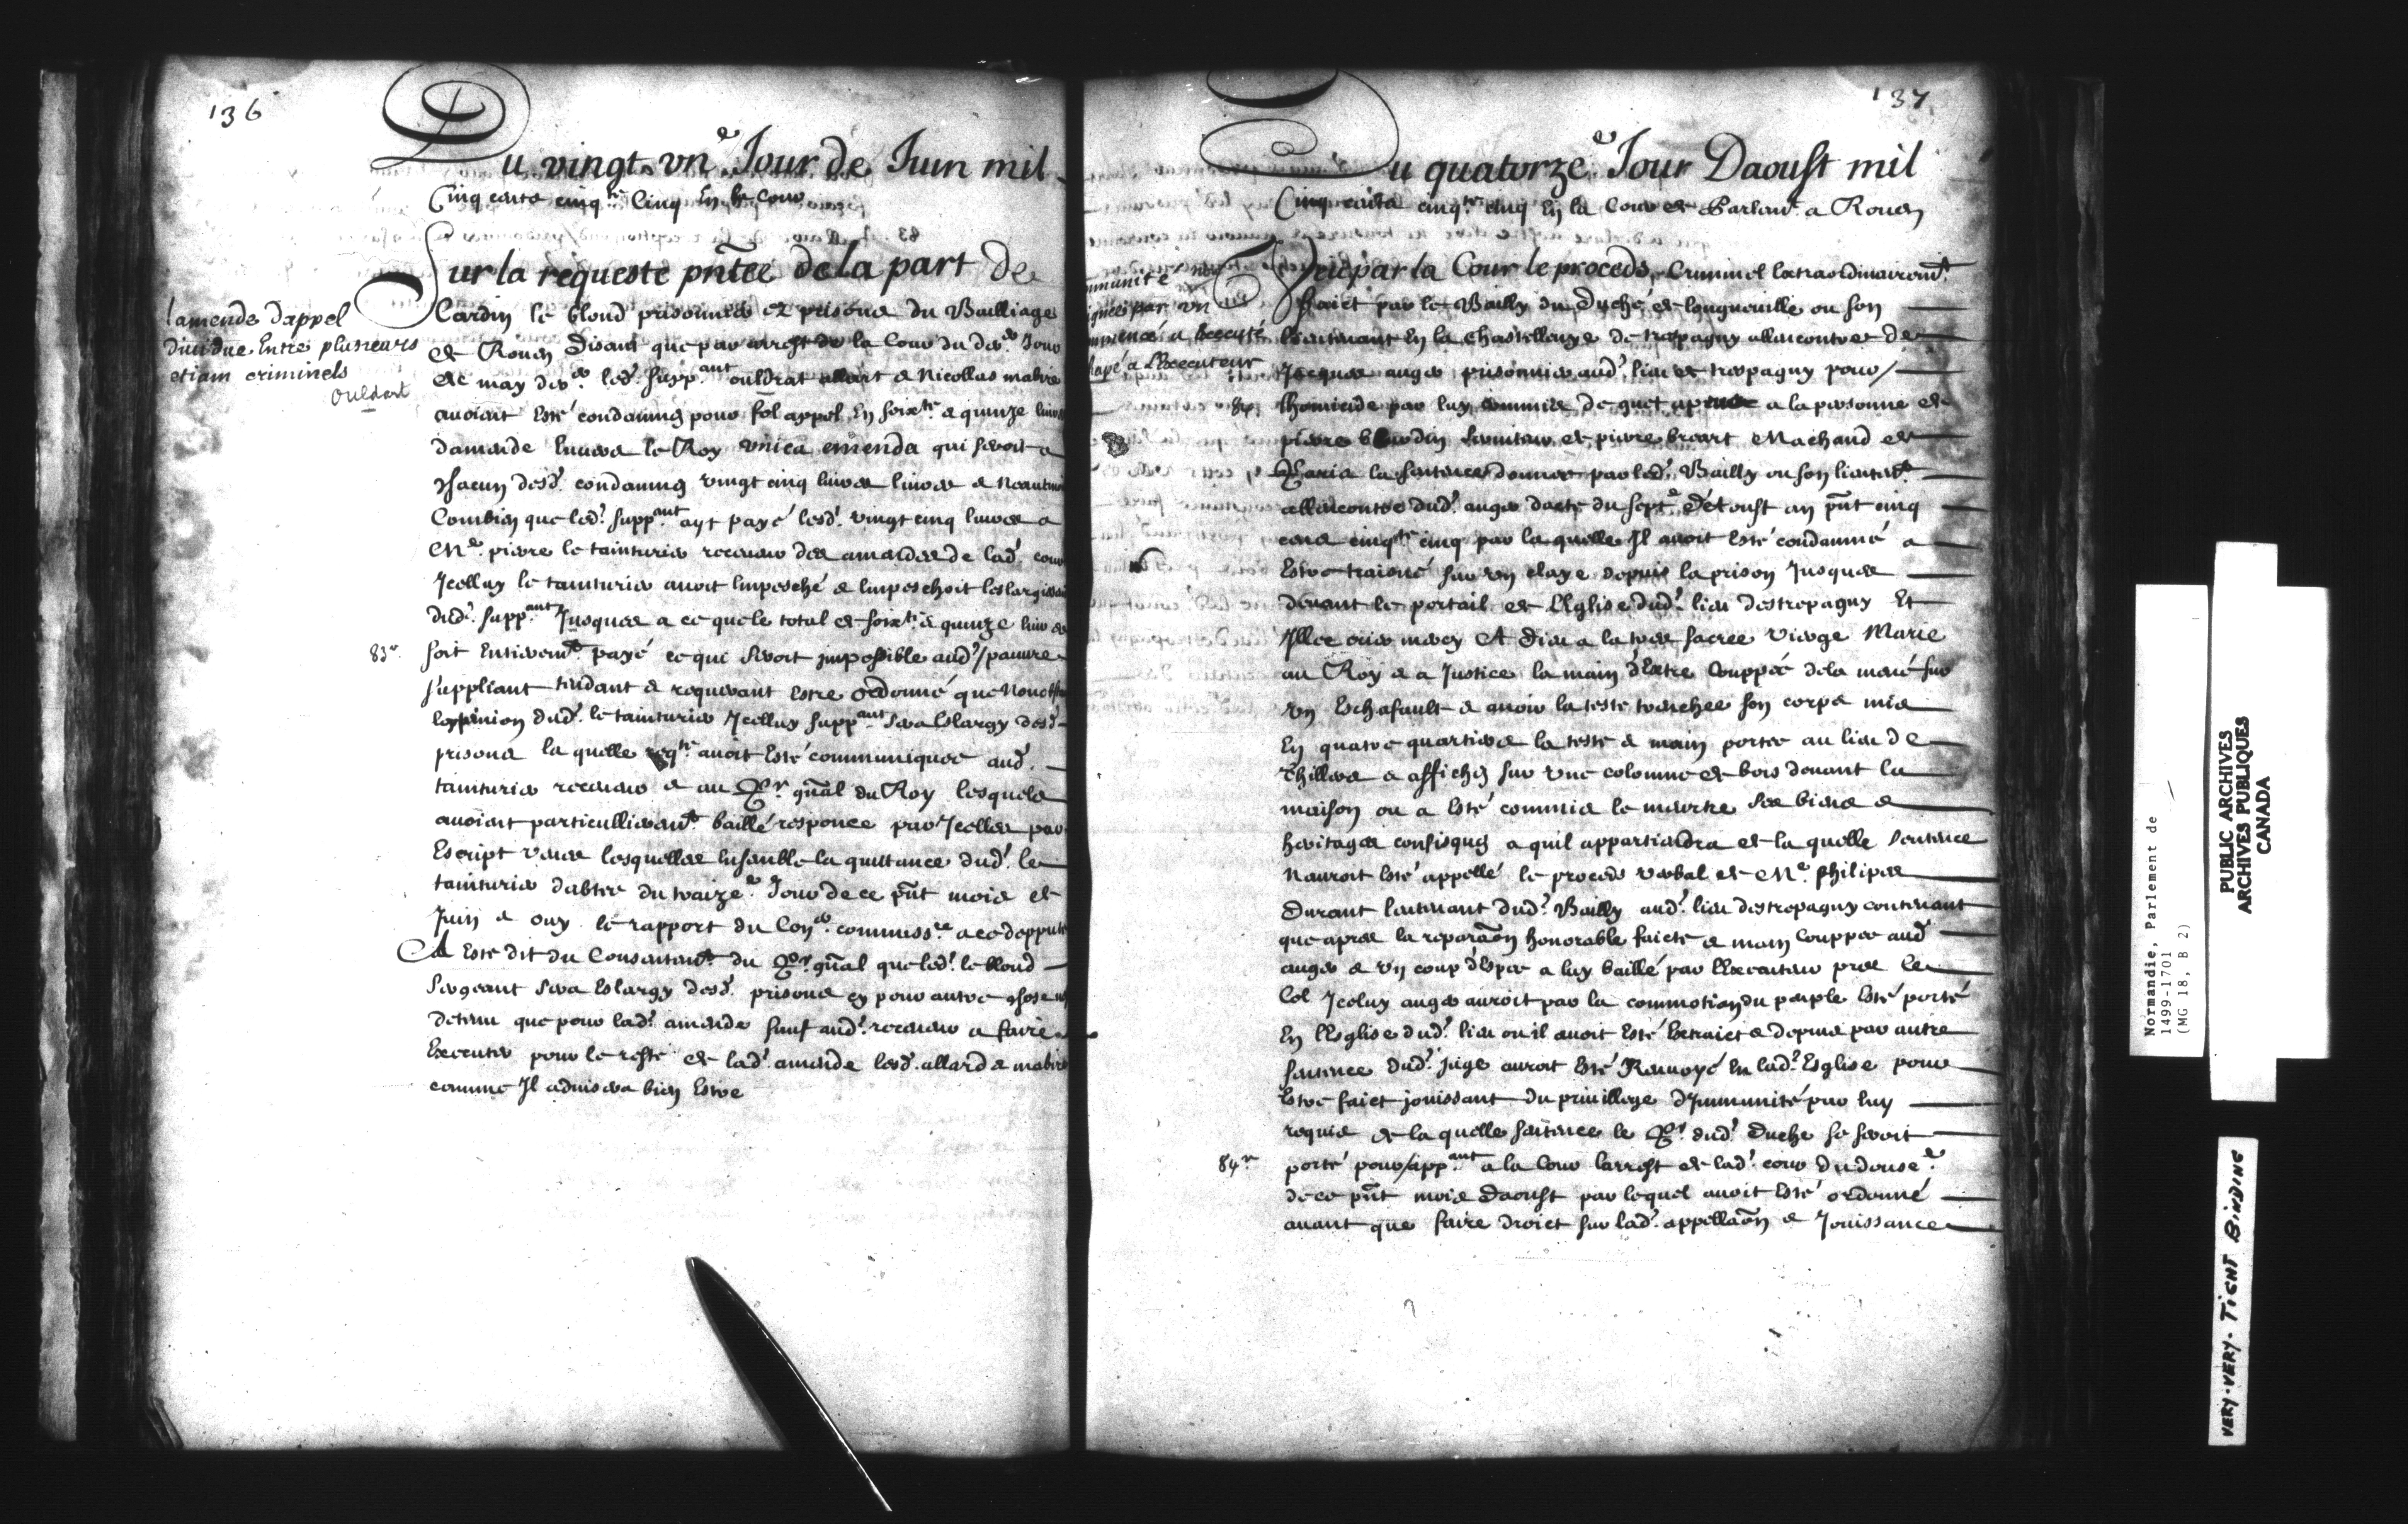 136
Du vingt vn.e Jour de Juin mil
Cinq cents cinq.te Cinq En la Cour
Sur la requeste pñtee de la part de
lamende dappel
diuidue Entre plusieurs
etiam criminels
ouldart
Cardin le blond prisonnier ez prisons du Bailliage
de Rouen Disant que par arrest de la Cour du der. Jour
de may der. led. supp.ant ouldrat allart & Nicollas mabire
auoient Esté condamnes pour fol appel En soix.te & quinze liures
damende Enuers le Roy vnica emenda qui seroit a
chacun desd. condamnes vingt cinq liures & Neantmoins
Combien que led. supp.ant ayt payé lesd. vingt cinq liures a
Me. pierre le tainturier receueur des amendes de lad. cour
Jcelluy le tainturier auoit Empesché & Empeschoit leslargissement
dud. supp.ant Jusques a ce que le total de soix.te & quinze liures
83.e
soit Entierem.t payé ce qui seroit jmpossible aud. pauure
suppliant tendant & requerant Estre ordonné que Nonobstant
loppinion dud. le tainturier Jcelluy supp.ant sera Eslargy desd.
prisons la quelle req.te auoit Esté communiquee aud.
tainturier receueur & au P.r gñal du Roy lesquels
auoient particullierem.t baillé responce par Jcelles par
Escript veues lesquelles Ensemble la quittance dud. le
tainturier dabtee du traize.e Jour de ce pñt mois de
Juin & ouy le rapport du Con.er commiss.re a ce depputé
A Esté dit du Consentem.t du P.r gñal que led. le blond
sergeant sera Eslargy desd. prisons
detenu que pour lad. amende sauf aud. receueur a faire
Executer pour le reste de lad. amende lesd. allard & mabire
comme Jl aduisera bien Estre
137
Du quatorze.e Jour Daoust mil
Cinq cents cinq.te cinq En la Cour de Parlem.t a Rouen
mmunité
ignée par vn
mmencé a Executé
apé a lExecuteur
Veu par la Cour le proceds Criminel Extraordinairem.t
faict par le Bailly du Duché de longueuille ou son
lieutenant En la Chastellenye de trepagny allencontre de
Jacques anger prisonnier aud. lieu de trepagny pour
84
lhomicide par luy commis de guet apens a la personne de
pierre seruiteur de pierre breart Machand de
Paris la sentence donnee par led. Bailly ou son lieuten.t
allencontre dud. anger dacte du sept.e dAoust an pñt cinq
cens cinq.te cinq par la quelle Jl auoit Esté condamné a
Estre traisné sur vn claye depuis la prison Jusques
deuant le portail de lEglise dud. lieu destrepagny Et
Jllec crier mercy A Dieu a la tres sacree vierge Marie
au Roy & a Justice la main dExtre Couppée sur
vn Eschafault & auoir la teste trenchee son corps mis
En quatre quartiers la teste & main portee au lieu de
thilliers & affiches sur vne colomne de bois deuant la
maison ou a Esté commis le meurtre ses biens &
heritages confisqués a quil appartiendra de la quelle sentence
Nauroit Esté appellé le proceds verbal de Me. philipes
Durant lieutenant dud. Bailly aud. lieu destrepagny contenant
que apres la reparaõn honorable faicte & main Couppee aud
anger & vn coup dEspee a luy baillé par lExecuteur pres le
Col Jceluy anger auroit par la commotion du peuple Esté porté
En lEsglise dud. lieu ou il auoit Esté Extraict & depuis par autre
sentence dud. juge auroit Esté Renuoyé En lad. Esglise pour
Estre faict jouissant du priuillege dJmmunité par luy
requis de la quelle sentence le P.r dud. Duche se seroit
84.e
porté pour app.ant a la Cour larrest de lad. cour du douse.e
de ce pñt mois daoust par lequel auoit Esté ordonné
auant que faire droict sur lad. appellaõn & Jouissance
Normandie, Parlement de
1499-1701
(MG 18, B 2)
PUBLIC ARCHIVES
ARCHIVES PUBLIQUES
CANADA
VERY-VERY-TIGHT BINDING